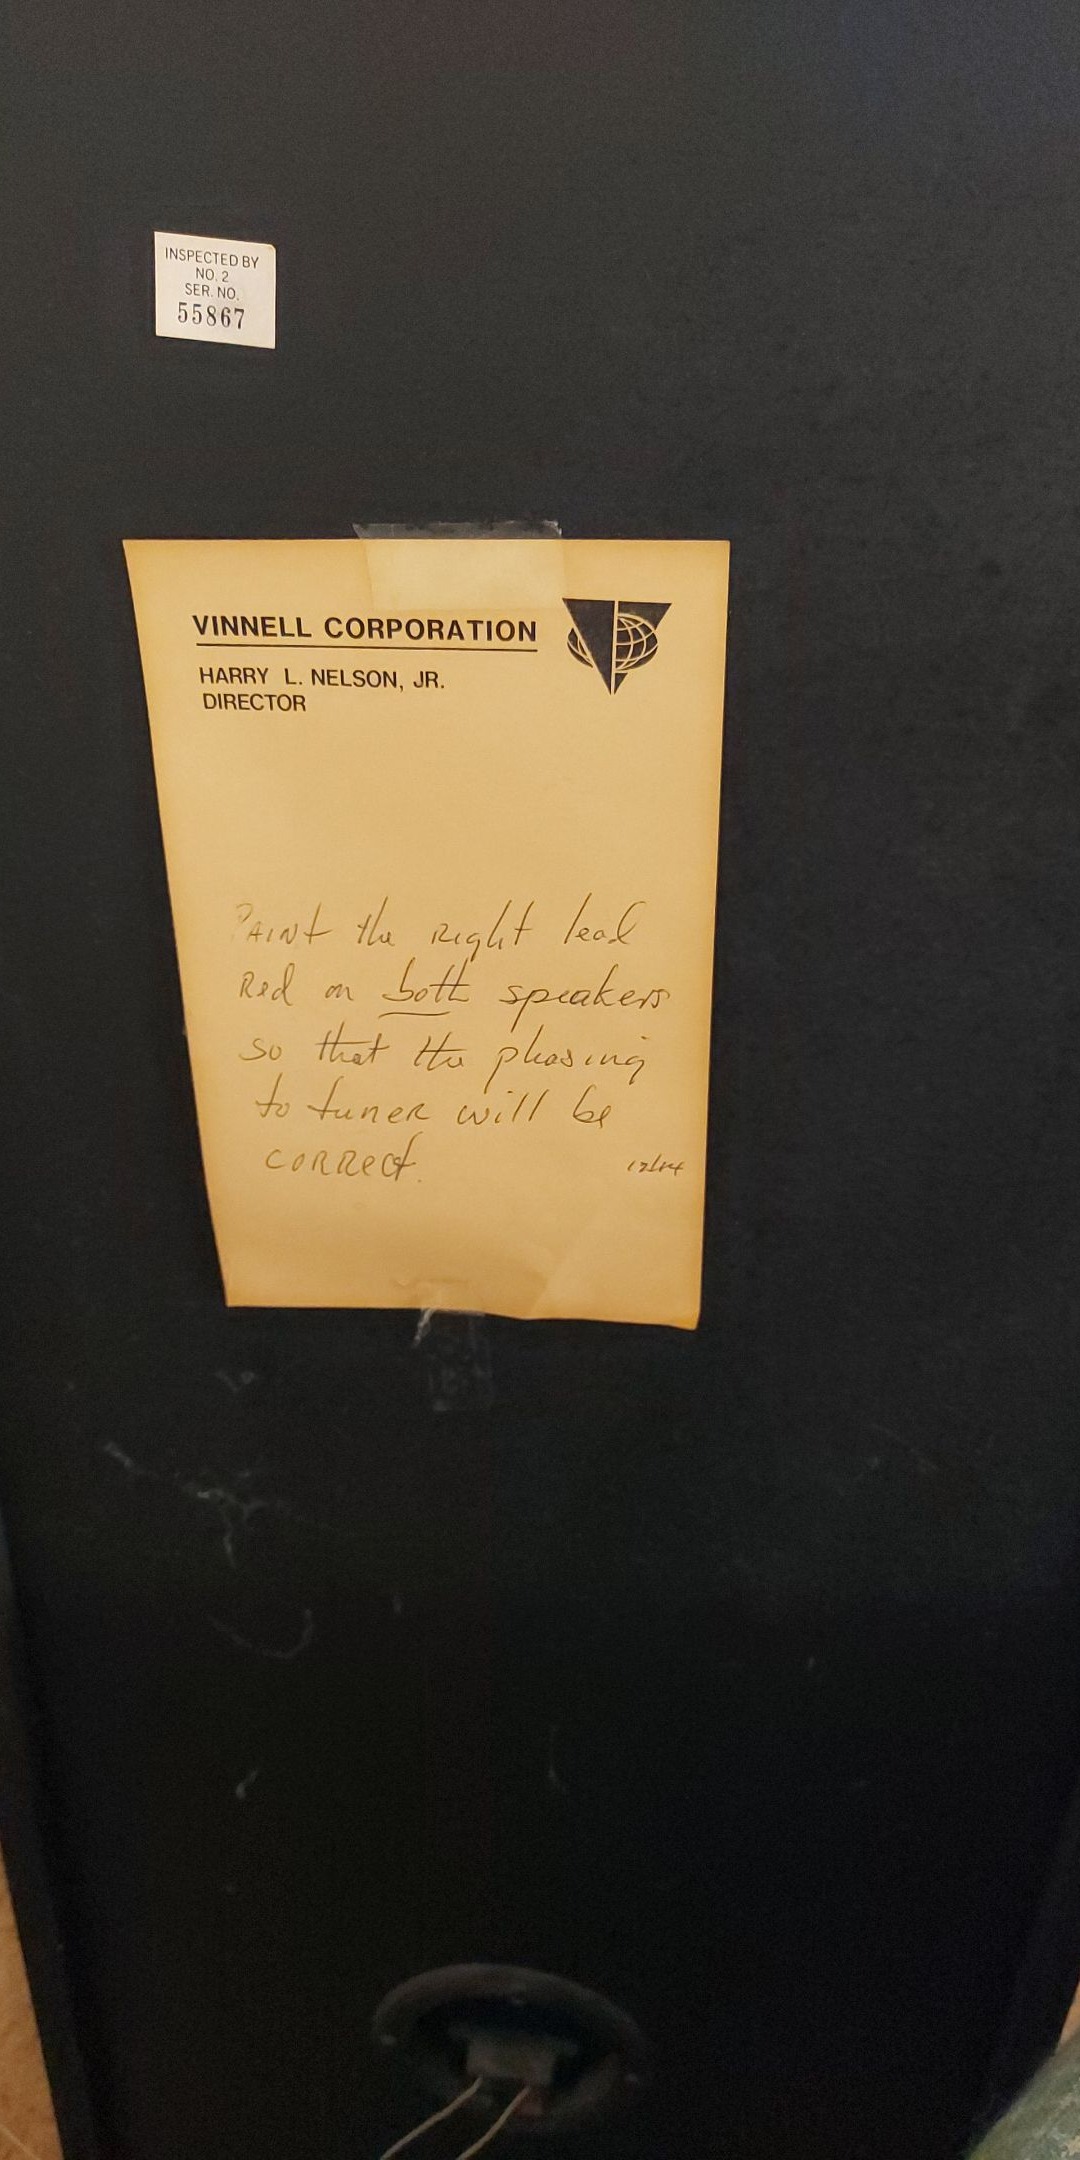 INSPECTED BY
NO. 2
SER. NO.
55867
VINNELL CORPORATION
HARRY L. NELSON, JR.
DIRECTOR
PAINT the Right lead
Red on both speakers
so that the phasing
to tuner will be
CORRect.